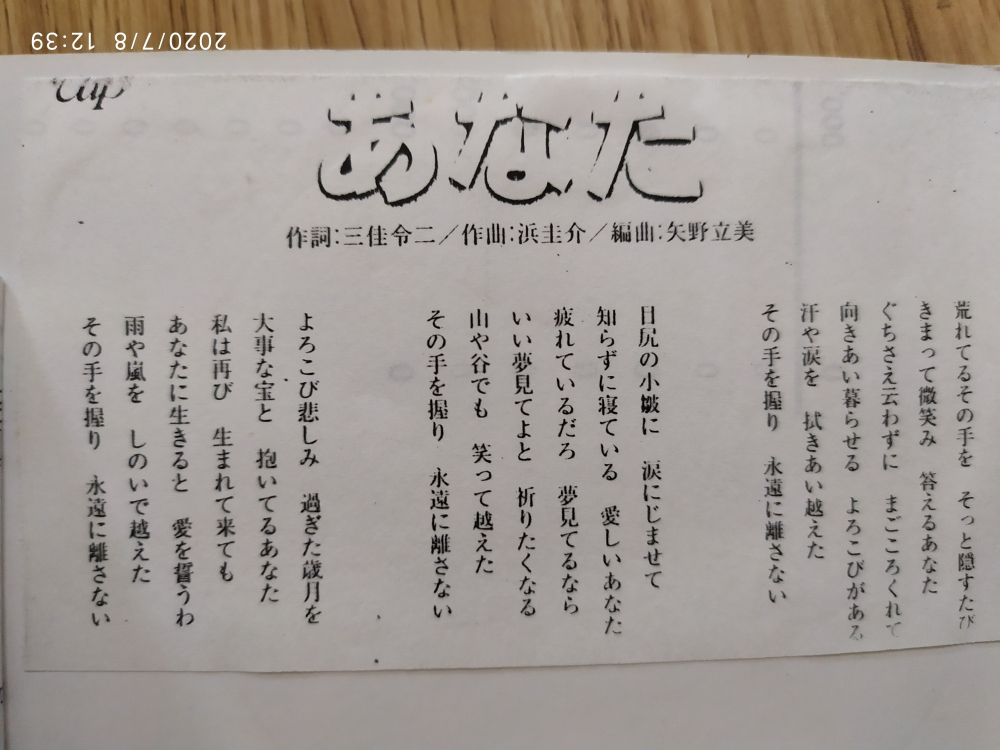 2020/7/8 12:39
あなた
作詞:三佳令二/作曲:浜圭介/編曲:矢野立美
荒れてるその手を そっと隠すたび
きまって微笑み 答えるあなた
ぐちさえ云わずに まごころくれて
向きあい暮らせる よろこびがある
汗や涙を 拭きあい越えた
その手を握り 永遠に離さない
目尻の小皺に 涙にじませて
知らずに寝ている 愛しいあなた
疲れているだろ 夢見てるなら
いい夢見てよと 祈りたくなる
山や谷でも 笑って越えた
その手を握り 永遠に離さない
よろこび悲しみ 過ぎた歳月を
大事な宝と 抱いてるあなた
私は再び 生まれて来ても
あなたに生きると 愛を誓うわ
雨や嵐を しのいで越えた
その手を握り 永遠に離さない